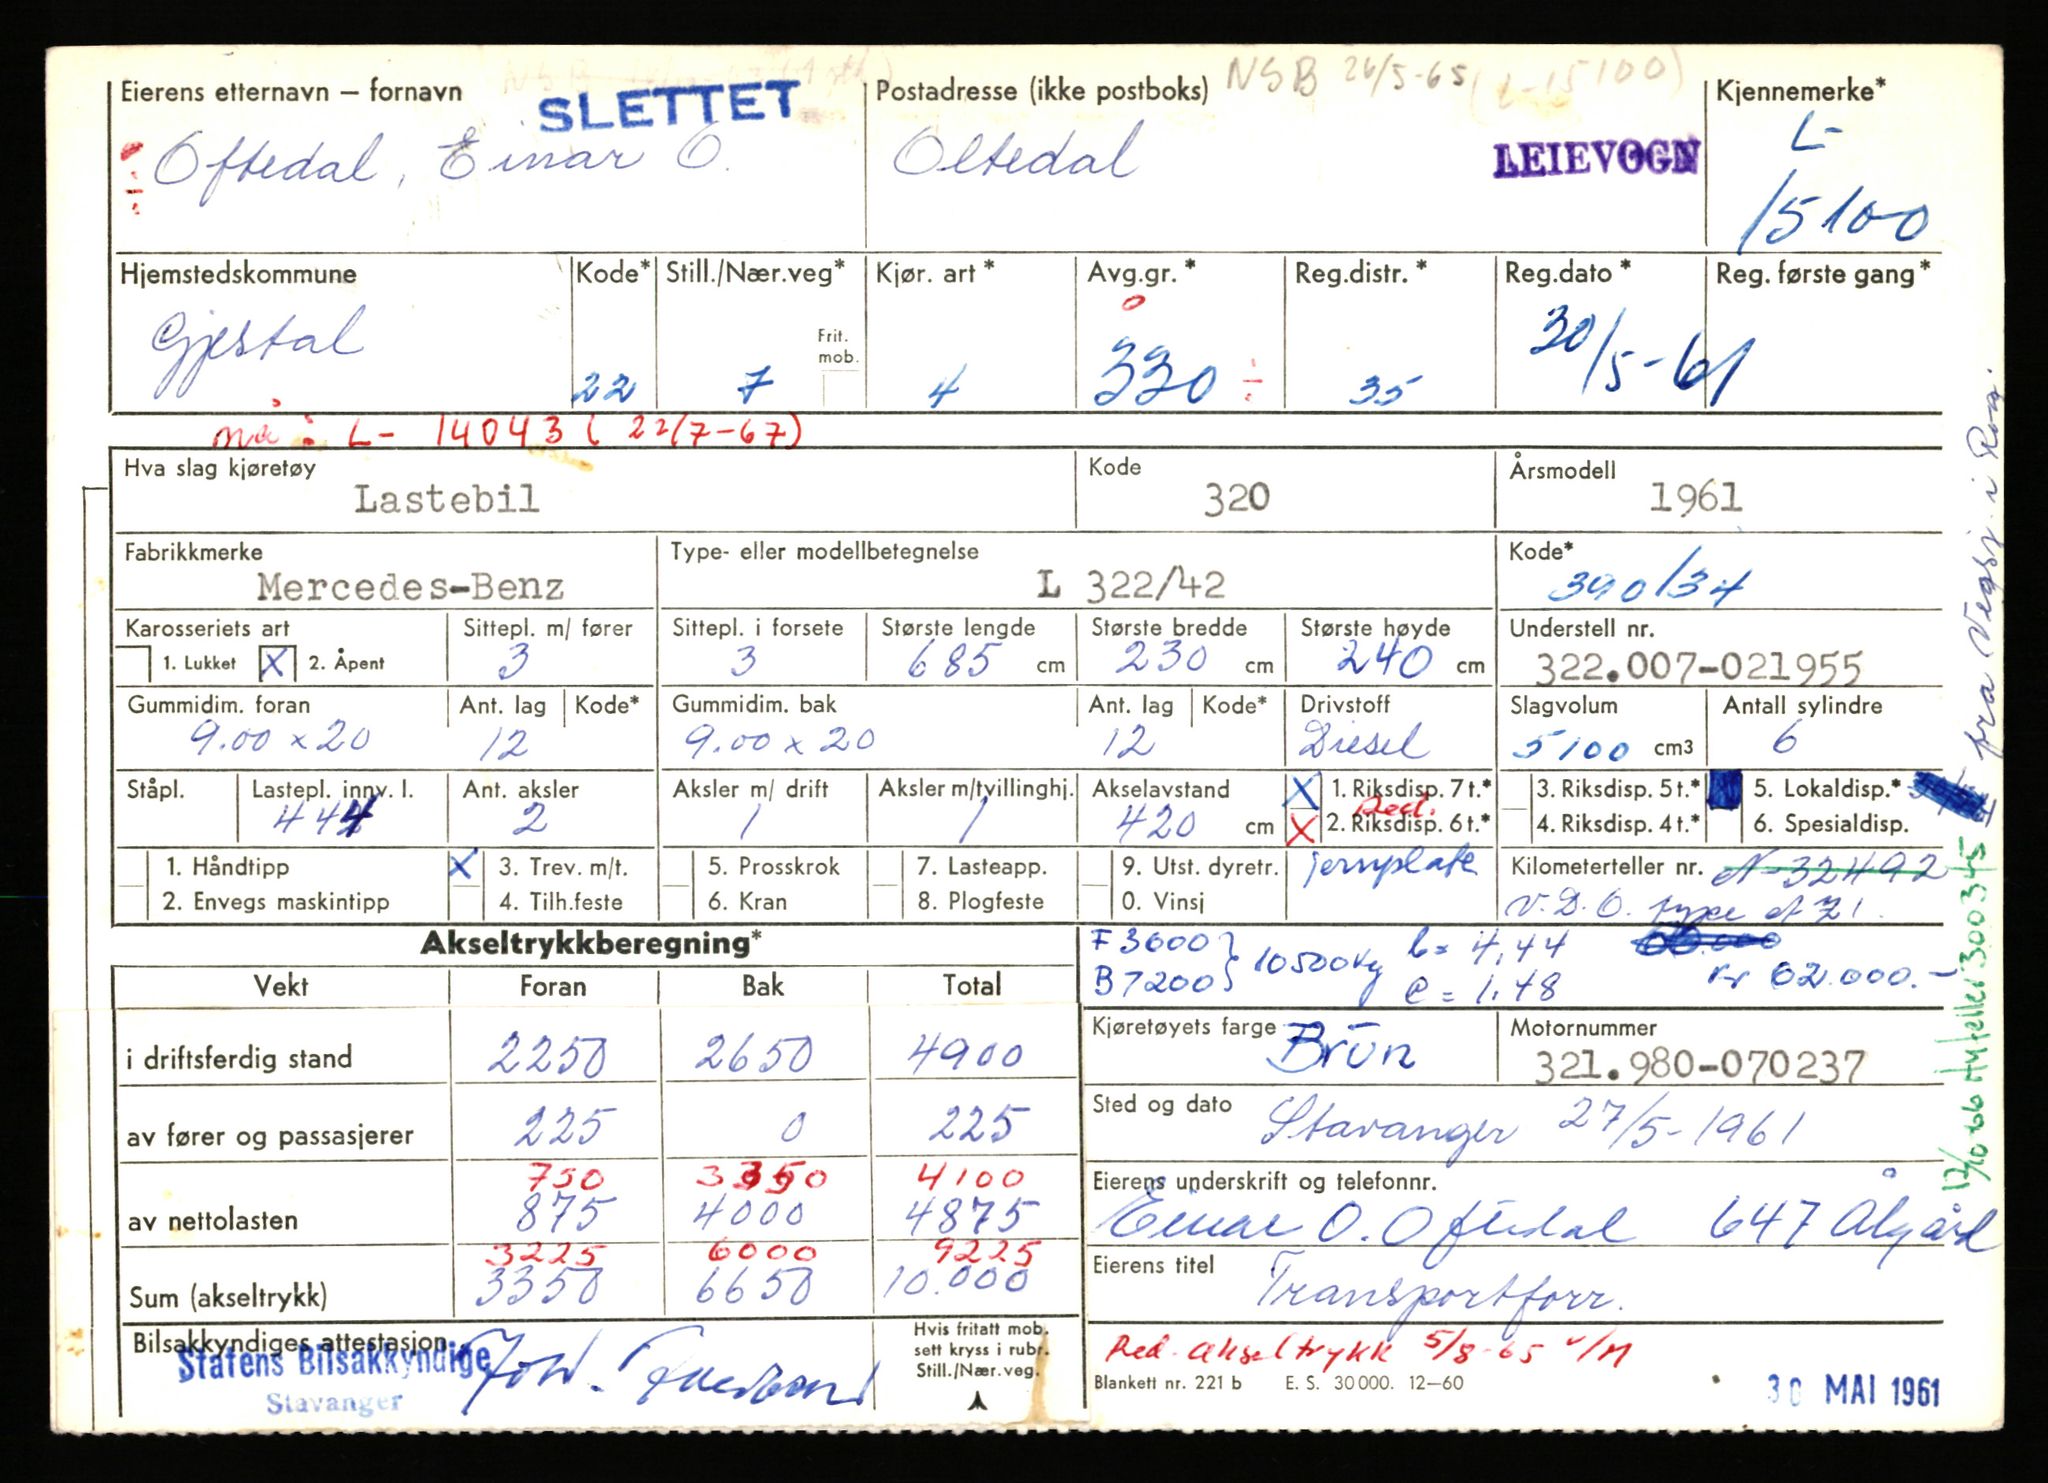 NSB 26/5-65 (L-15100)
Eierens etternavn – fornavn
SLETTET
Postadresse (ikke postboks)
Kjennemerke*
Oftedal, Einar O.
Oltedal
LEIEVOGN
L-
15100
Hjemstedskommune
Kode*
Still./Nær.veg*
Kjør. art *
Avg.gr. *
Reg.distr. *
Reg.dato *
Reg. første gang *
0
Gjestal
22
7
Frit. mob.
4
330 ÷
35
30/5-61
nå : L- 14043 ( 22/7-67)
Hva slag kjøretøy
Kode
Årsmodell
Lastebil
320
1961
Fabrikkmerke
Type- eller modellbetegnelse
Kode*
Mercedes-Benz
L 322/42
390/34
Karosseriets art
Sittepl. m/ fører
Sittepl. i forsete
Største lengde
Største bredde
Største høyde
Understell nr.
1. Lukket
X 2. Åpent
3
3
685 cm
230 cm
240 cm
322.007-021955
Gummidim. foran
Ant. lag
Kode*
Gummidim. bak
Ant. lag
Kode*
Drivstoff
Slagvolum
Antall sylindre
9.00 x 20
12
9.00 x 20
12
Diesel
5100 cm3
6
Ståpl.
Lastepl. innv. l.
Ant. aksler
Aksler m/ drift
Aksler m/tvillinghj.
Akselavstand
X 1. Riksdisp. 7 t.*
3. Riksdisp. 5 t.*
5. Lokaldisp.*
444
2
1
1
420 cm
Red.
X 2. Riksdisp. 6 t.*
4. Riksdisp. 4 t.*
6. Spesialdisp.
1. Håndtipp
X 3. Trev. m/t.
5. Prosskrok
7. Lasteapp.
9. Utst. dyretr.
jernplate
Kilometerteller nr. N-32492
2. Envegs maskintipp
4. Tilh.feste
6. Kran
8. Plogfeste
0. Vinsj
V.D.O. type
Akseltrykkberegning*
F 3600
B 7200
10500 kg
b = 4,44
c = 1,48
kr 62.000.-
Vekt
Foran
Bak
Total
i driftsferdig stand
2250
2650
4900
Kjøretøyets farge
Brun
Motornummer
321.980-070237
av fører og passasjerer
225
0
225
Sted og dato
Stavanger 27/5-1961
750
3350
4100
av nettolasten
875
4000
4875
Eierens underskrift og telefonnr.
Einar O. Oftedal 647 Ålgård
3225
6000
9225
Sum (akseltrykk)
3350
6650
10.000
Eierens titel
Transportforr.
Bilsakkyndiges attestasjon
Statens Bilsakkyndige
Stavanger
Hvis fritatt mob.
sett kryss i rubr.
Still./Nær.veg.
Red. akseltrykk 5/8-65
Blankett nr. 221 b E. S. 30 000. 12–60
30 MAI 1961
fra Vegsj. i Rog.
12/10 66 Ny teller 300345